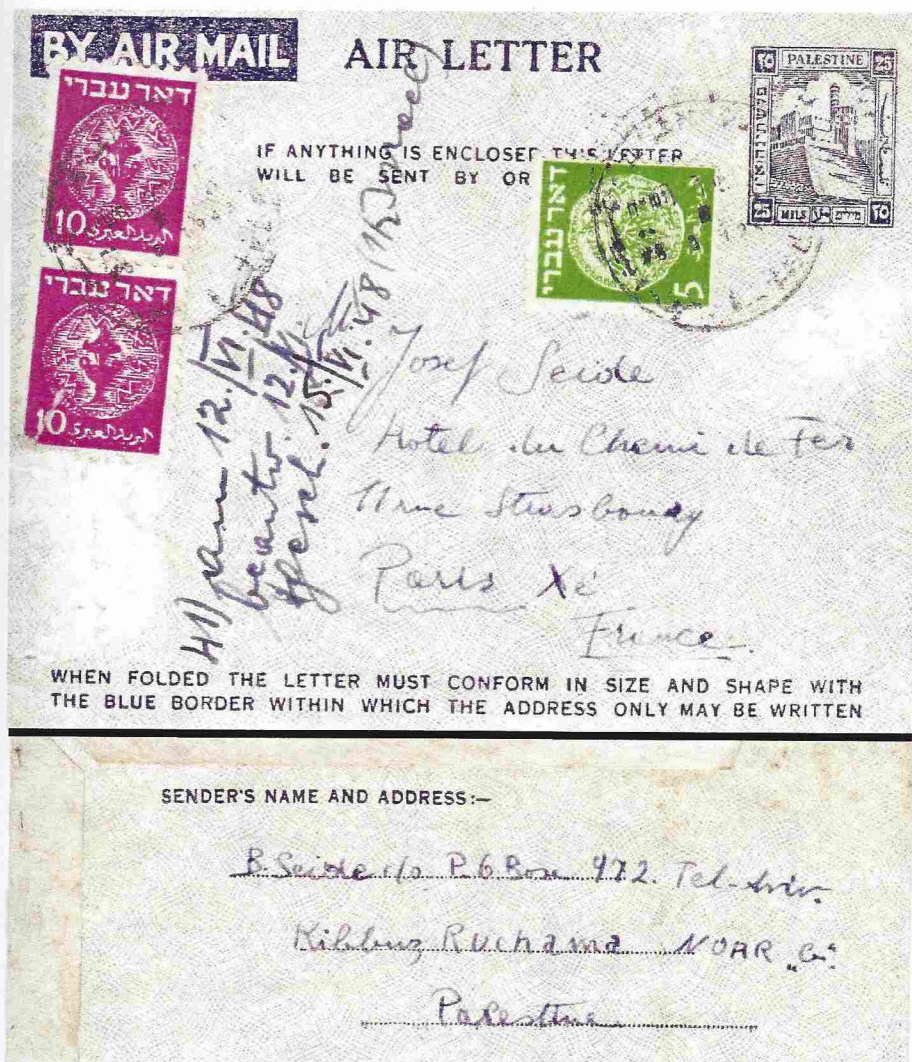 BY AIR MAIL
AIR LETTER
PALESTINE
25
٢٥
25 MILS مل מילים ٢٥
דאר עברי
10 البريد العبري
דאר עברי
10 البريد العبري
IF ANYTHING IS ENCLOSED THIS LETTER
WILL BE SENT BY OR
דאר עברי
5
41)
12./VI.48
beantw. 12./VI.
15./VI.48
Josef Seide
Hotel du Chemi de Fer
11 rue Strasbourg
Paris Xe
France
WHEN FOLDED THE LETTER MUST CONFORM IN SIZE AND SHAPE WITH
THE BLUE BORDER WITHIN WHICH THE ADDRESS ONLY MAY BE WRITTEN
SENDER'S NAME AND ADDRESS:—
B. Seide c/o P.O Box 472. Tel-Aviv.
Kibbuz Ruchama NOAR
Palestine